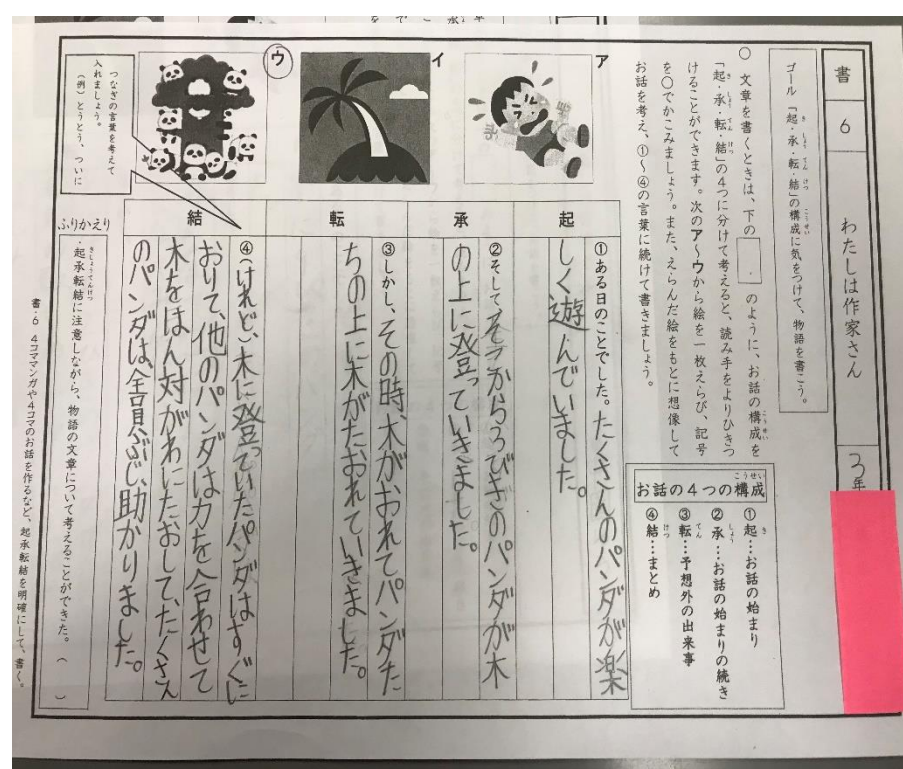 書
6
わたしは作家さん
3年
ゴール 「起・承・転・結」の構成に気をつけて、物語を書こう。
き しょう てん けつ こうせい
○ 文章を書くときは、下の  のように、お話の構成を
こうせい
「起・承・転・結」の4つに分けて考えると、読み手をよりひきつ
き しょう てん けつ
けることができます。次のア～ウから絵を一枚えらび、記号
を○でかこみましょう。また、えらんだ絵をもとに想像して
お話を考え、①～④の言葉に続けて書きましょう。
お話の4つの構成
こうせい
①起…お話の始まり
き
②承…お話の始まりの続き
しょう
③転…予想外の出来事
てん
④結…まとめ
けつ
ア
イ
ウ
つなぎの言葉を考えて
入れましょう。
(例)とうとう、ついに
起
①ある日のことでした。たくさんのパンダが楽
しく遊んでいました。
承
②そして、
のパンダが木
の上に登っていきました。
転
③しかし、その時、木がおれてパンダた
ちの上に木がたおれていきました。
結
④(けれど)、木に登っていたパンダはすぐに
おりて、他のパンダは力を合わせて
木をはん対がわにたおして、たくさん
のパンダは、全員ぶじ、助かりました。
ふりかえり
・起承転結に注意しながら、物語の文章について考えることができた。( )
きしょうてんけつ
書・6 4コママンガや4コマのお話を作るなど、起承転結を明確にして、書く。